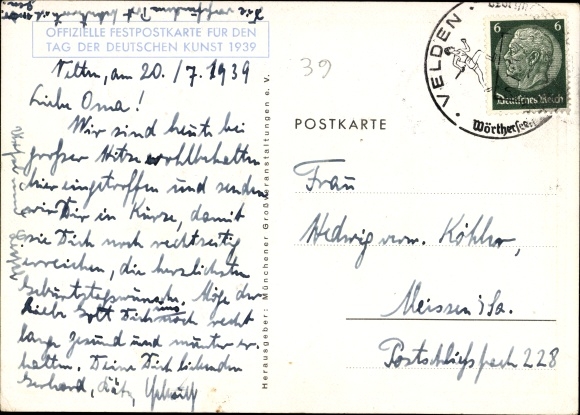 OFFIZIELLE FESTPOSTKARTE FÜR DEN
TAG DER DEUTSCHEN KUNST 1939
am 20./7.1939
Liebe Oma!
Wir sind heute bei
großer Hitze wohlbehalten
hier eingetroffen und senden
wir Dir in Kürze, damit
sie Dich noch rechtzeitig
erreichen, die herzlichsten
Geburtstagswünsche. Möge der
liebe Gott Dich uns noch recht
lange gesund und munter er-
halten. Deine Dich liebenden
Gerhard, Käte,
Herausgeber: Münchener Großveranstaltungen e. V.
39
POSTKARTE
VELDEN
Wörthersee
6 6
Deutsches Reich
Frau
Hedwig verw. Köhler,
Meissen i/Sa.
Postschließfach 228